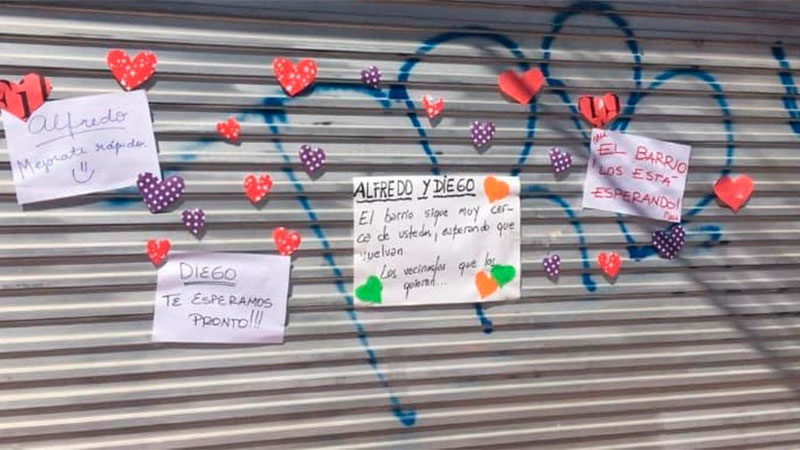 Alfredo
Mejorate rápido.
DIEGO
TE ESPERAMOS
PRONTO!!!
ALFREDO Y DIEGO
El barrio sigue muy cer-
ca de ustedes, esperando que
vuelvan
Los vecinos/as que los
quieren...
¡EL BARRIO
LOS ESTÁ
ESPERANDO!